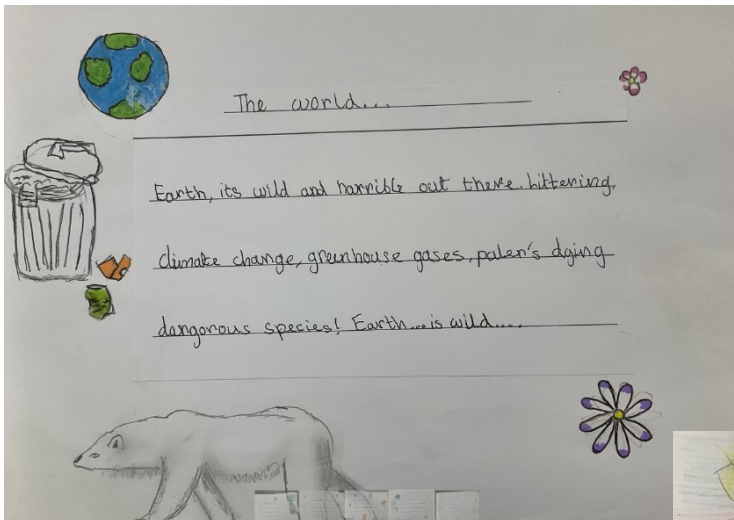 The world...
Earth, its wild and harrible out there. Littering,
climate change, greenhouse gases, palen's dying
dangorous species! Earth... is wild....